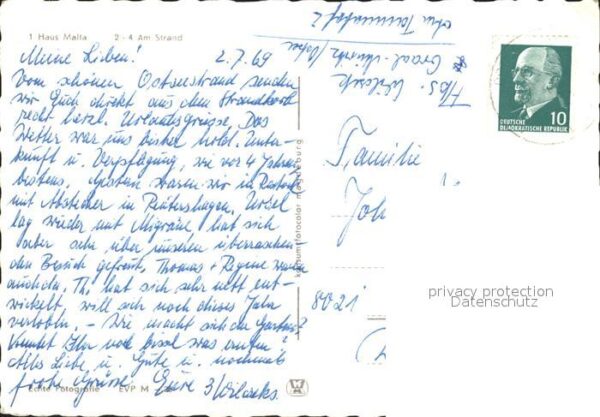 1 Haus Malta 2-4 Am Strand
Meine Lieben! 2.7.69
Vom schönen Ostseestrand senden
wir Euch direkt aus dem Strandkorb
recht herzl. Urlaubsgrüsse. Das
Wetter war uns bisher hold. Unter-
kunft u. Verpflegung, wie vor 4 Jahren
bestens. Gestern waren wir in Rostock
mit Abstecher in Ribnitzhagen. Ursel
lag wieder mit Migräne, hat sich
aber sehr über unseren überraschen-
den Besuch gefreut, Thomas + Regine waren
auch da. Th. hat sich sehr nett ent-
wickelt, will sich noch dieses Jahr
verloben. - Wie macht sich der Garten?
Könntet Ihr noch bissl was ernten?
Alles Liebe u. Gute u. nochmals
frohe Grüsse Eure 3 Wilczeks.
Echte Fotografie EVP M
konsumfotocolor magdeburg
Abs. Wilczek
Graal-Müritz
Familie
Joh
8021
10
DEUTSCHE
DEMOKRATISCHE REPUBLIK
privacy protection
Datenschutz